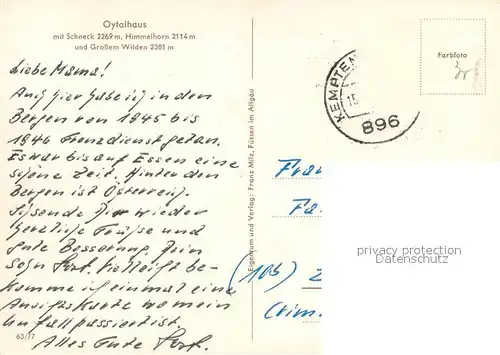 Oytalhaus
mit Schneck 2269 m, Himmelhorn 2114 m
und Großem Wilden 2381 m
Liebe Mama!
Auch hier habe ich in den
Bergen von 1945 bis
1946 Grenzdienst getan.
Es war bis auf Essen eine
schöne Zeit. Hinter den
Bergen ist Österreich.
Ich sende Dir wieder
herzliche Grüße und
gute Besserung. Dein
Sohn Vielleicht be-
komme ich einmal eine
Ansichtskarte wo mein
Unfall passiert ist.
Alles Gute
63/77
Eigentum und Verlag: Franz Milz, Füssen im Allgäu
KEMPTEN
15
896
Farbfoto
Frau
Fa
(10b) Z
Crim
privacy protection
Datenschutz